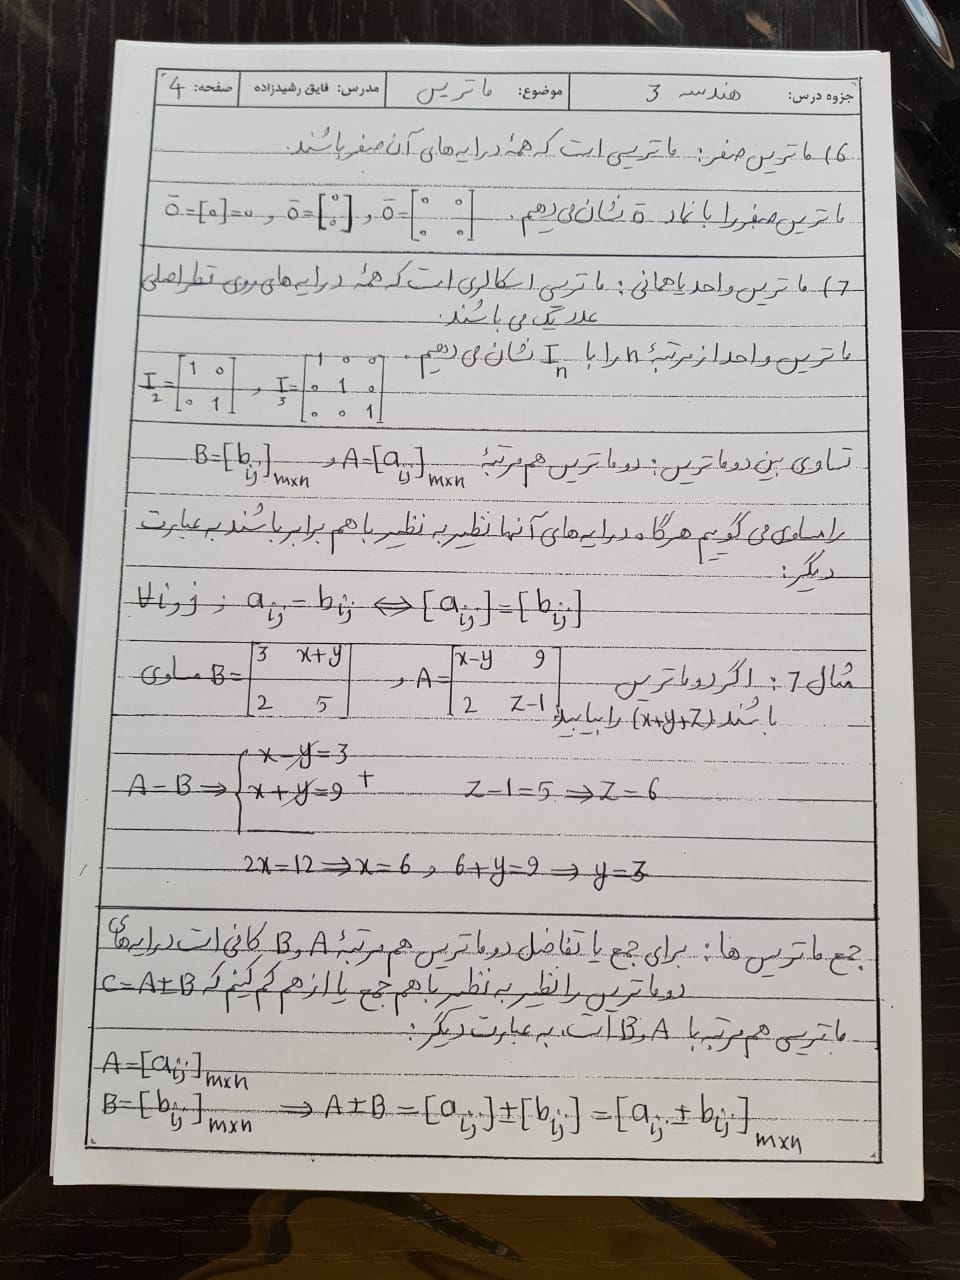 جزوه درس: هندسه 3 موضوع: ماتریس مدرس: فایق رشیدزاده صفحه: 4
6) ماتریس صفر: ماتریسی است که همۀ درایه‌های آن صفر باشند.
ماتریس صفر را با نماد Ō نشان می دهیم. Ō=[0 0; 0 0] , Ō=[0; 0] , Ō=[0]=0
7) ماتریس واحد یا همانی: ماتریسی اسکالری است که همۀ درایه‌های روی قطر اصلی
عدد یک می باشند.
ماتریس واحد از مرتبۀ n را با Iₙ نشان می دهیم. I₃=[1 0 0; 0 1 0; 0 0 1] , I₂=[1 0; 0 1]
تساوی بین دو ماتریس: دو ماتریس هم مرتبۀ A=[aᵢⱼ]m×n و B=[bᵢⱼ]m×n
را مساوی می گوییم هرگاه درایه‌های آنها نظیر به نظیر با هم برابر باشند به عبارت
دیگر:
∀i,j ; aᵢⱼ = bᵢⱼ ⇔ [aᵢⱼ]=[bᵢⱼ]
مثال 7: اگر دو ماتریس A=[x-y 9; 2 z-1] و B=[3 x+y; 2 5] مساوی
باشند (x+y+z) را بیابید.
A=B ⇒ { x-y=3
x+y=9 + z-1=5 ⇒ z=6
2x=12 ⇒ x=6 , 6+y=9 ⇒ y=3
جمع ماتریس ها: برای جمع یا تفاضل دو ماتریس هم مرتبۀ A و B کافی است درایه‌های
دو ماتریس را نظیر به نظیر با هم جمع یا از هم کم کنیم که C=A±B
ماتریسی هم مرتبه با A و B است، به عبارت دیگر:
A=[aᵢⱼ]m×n
B=[bᵢⱼ]m×n ⇒ A±B = [aᵢⱼ]±[bᵢⱼ]=[aᵢⱼ±bᵢⱼ]m×n